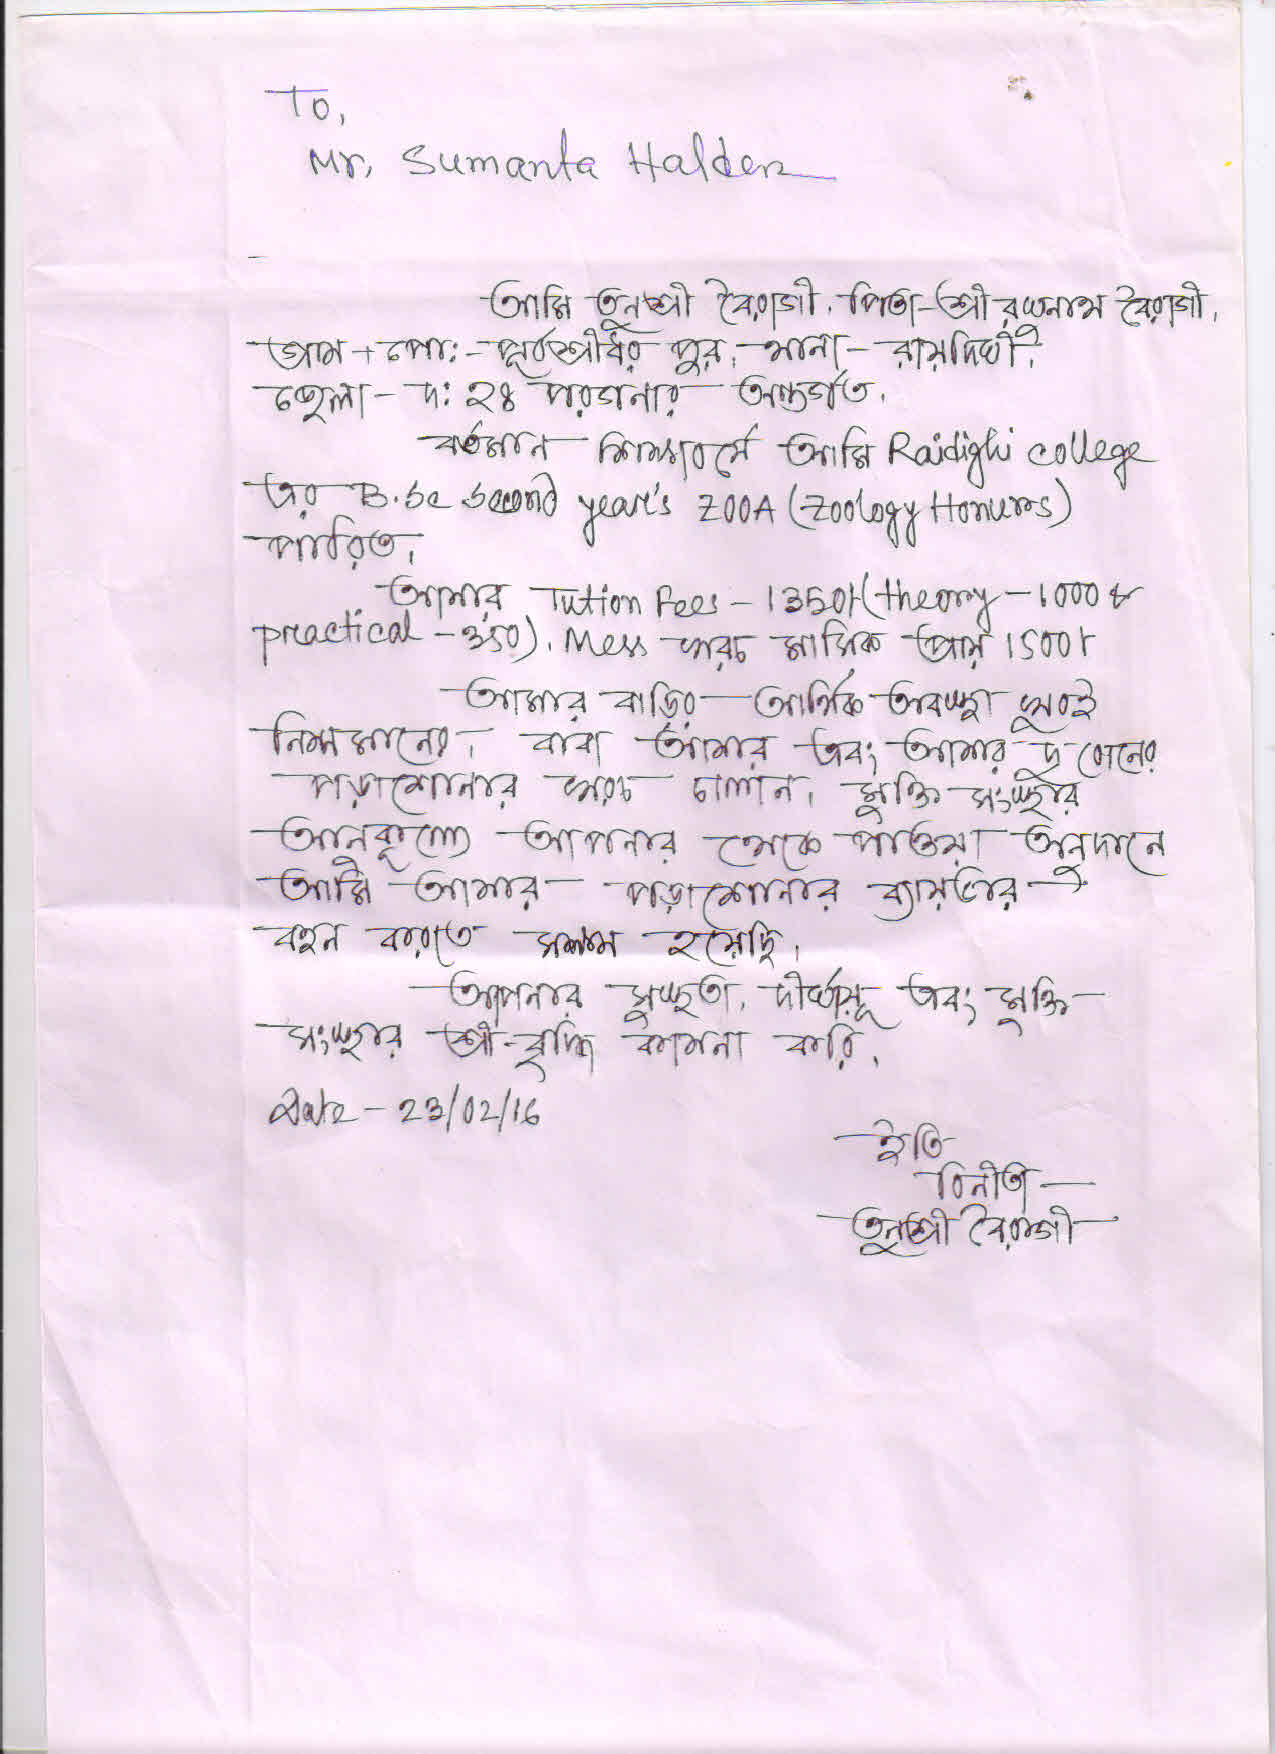 To,
Mr. Sumanta Halder
আমি তনুশ্রী বৈরাগী, পিতা-শ্রী রঘুনাথ বৈরাগী,
গ্রাম + পো:- পূর্বশ্রীধর পুর, থানা - রায়দিঘী,
জেলা - দ: ২৪ পরগনার অন্তর্গত,
বর্তমান শিক্ষাবর্ষে আমি Raidighi college
এর B.sc second year's ZOOA (Zoology Honurs)
পাঠরিত,
আমার Tution Fees - 1350/- (theory - 1000 &
practical - 350). Mess খরচ মাসিক প্রায় 1500/-
আমার বাড়ির আর্থিক অবস্থা খুবই
নিম্ন মানের, বাবা আমার এবং আমার দু বোনের
পড়াশোনার খরচ চালান, মুক্তি সংস্থার
আনকূল্যে আপনার থেকে পাওয়া অনুদানে
আমি আমার পড়াশোনার ব্যায়ভার
বহন করতে সক্ষম হয়েছি,
আপনার সুস্থতা, দীর্ঘায়ূ এবং মুক্তি
সংস্থার শ্রী-বৃদ্ধি কামনা করি,
Date - 23/02/16
ইতি
বিনীতা
তনুশ্রী বৈরাগী